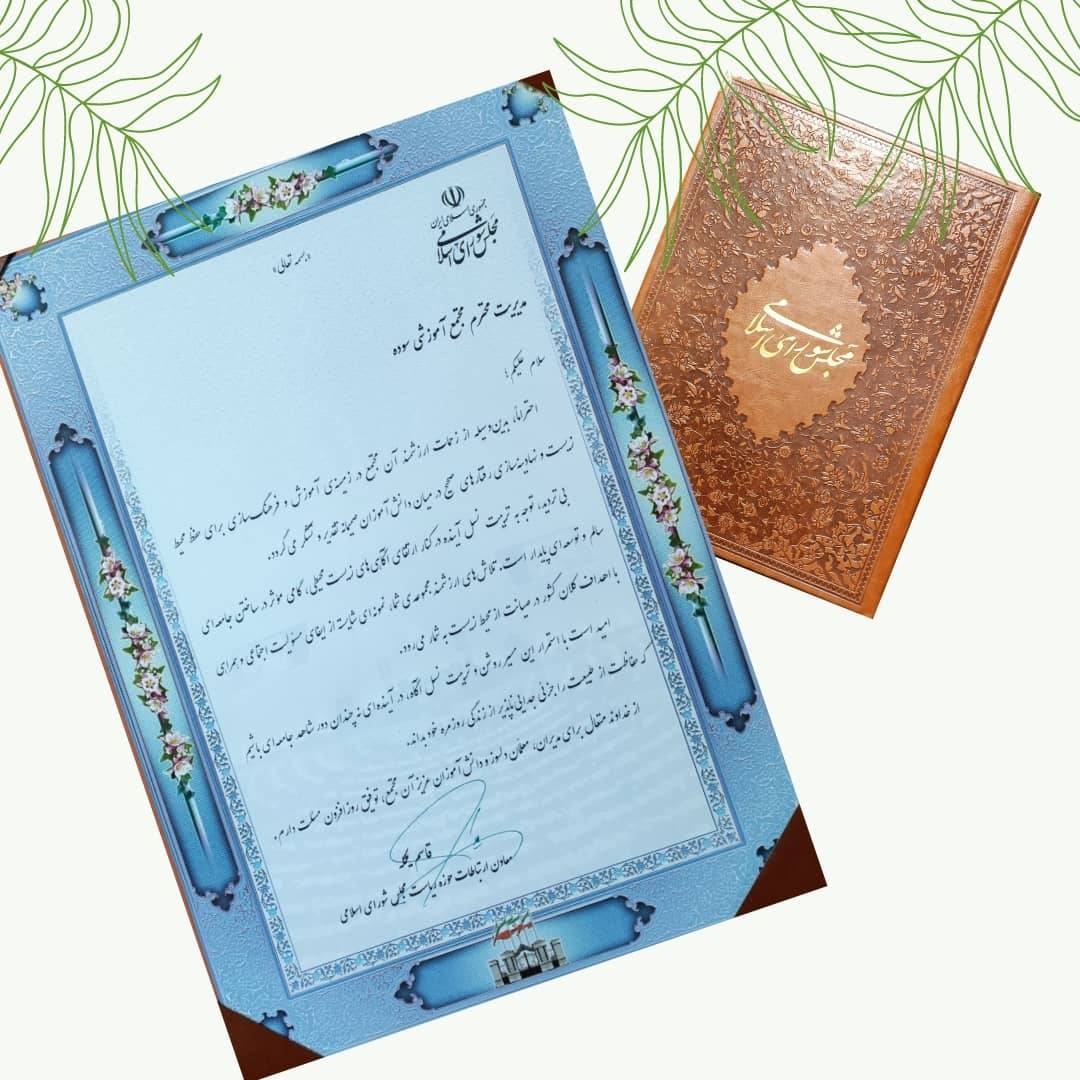 جمهوری اسلامی ایران
مجلس شورای اسلامی
«بسمه تعالی»
مدیریت محترم مجتمع آموزشی سوده
سلام علیکم؛
احتراماً، بدین‌وسیله از زحمات ارزشمند آن مجتمع در زمینه‌ی آموزش و فرهنگ‌سازی برای حفظ محیط
زیست و نهادینه‌سازی رفتارهای صحیح در میان دانش‌آموزان صمیمانه تقدیر و تشکر می‌گردد.
بی تردید، توجه به تربیت نسل آینده در کنار ارتقای آگاهی‌های زیست‌محیطی، گامی موثر در ساختن جامعه‌ای
سالم و توسعه‌ای پایدار است. تلاش‌های ارزشمند مجموعه‌ی شما، نمونه‌ای شایسته از ایفای مسئولیت اجتماعی و همراهی
با اهداف کلان کشور در صیانت از محیط زیست به شمار می‌رود.
امید است با استمرار این مسیر روشن و تربیت نسل آگاه، در آینده‌ای نه چندان دور شاهد جامعه‌ای باشیم
که حفاظت از طبیعت را جزئی جدایی‌ناپذیر از زندگی روزمره خود بداند.
از خداوند متعال برای مدیران، معلمان دلسوز و دانش‌آموزان عزیز آن مجتمع، توفیق روزافزون مسئلت دارم.
قاسم
معاون ارتباطات حوزه ریاست مجلس شورای اسلامی
مجلس شورای اسلامی